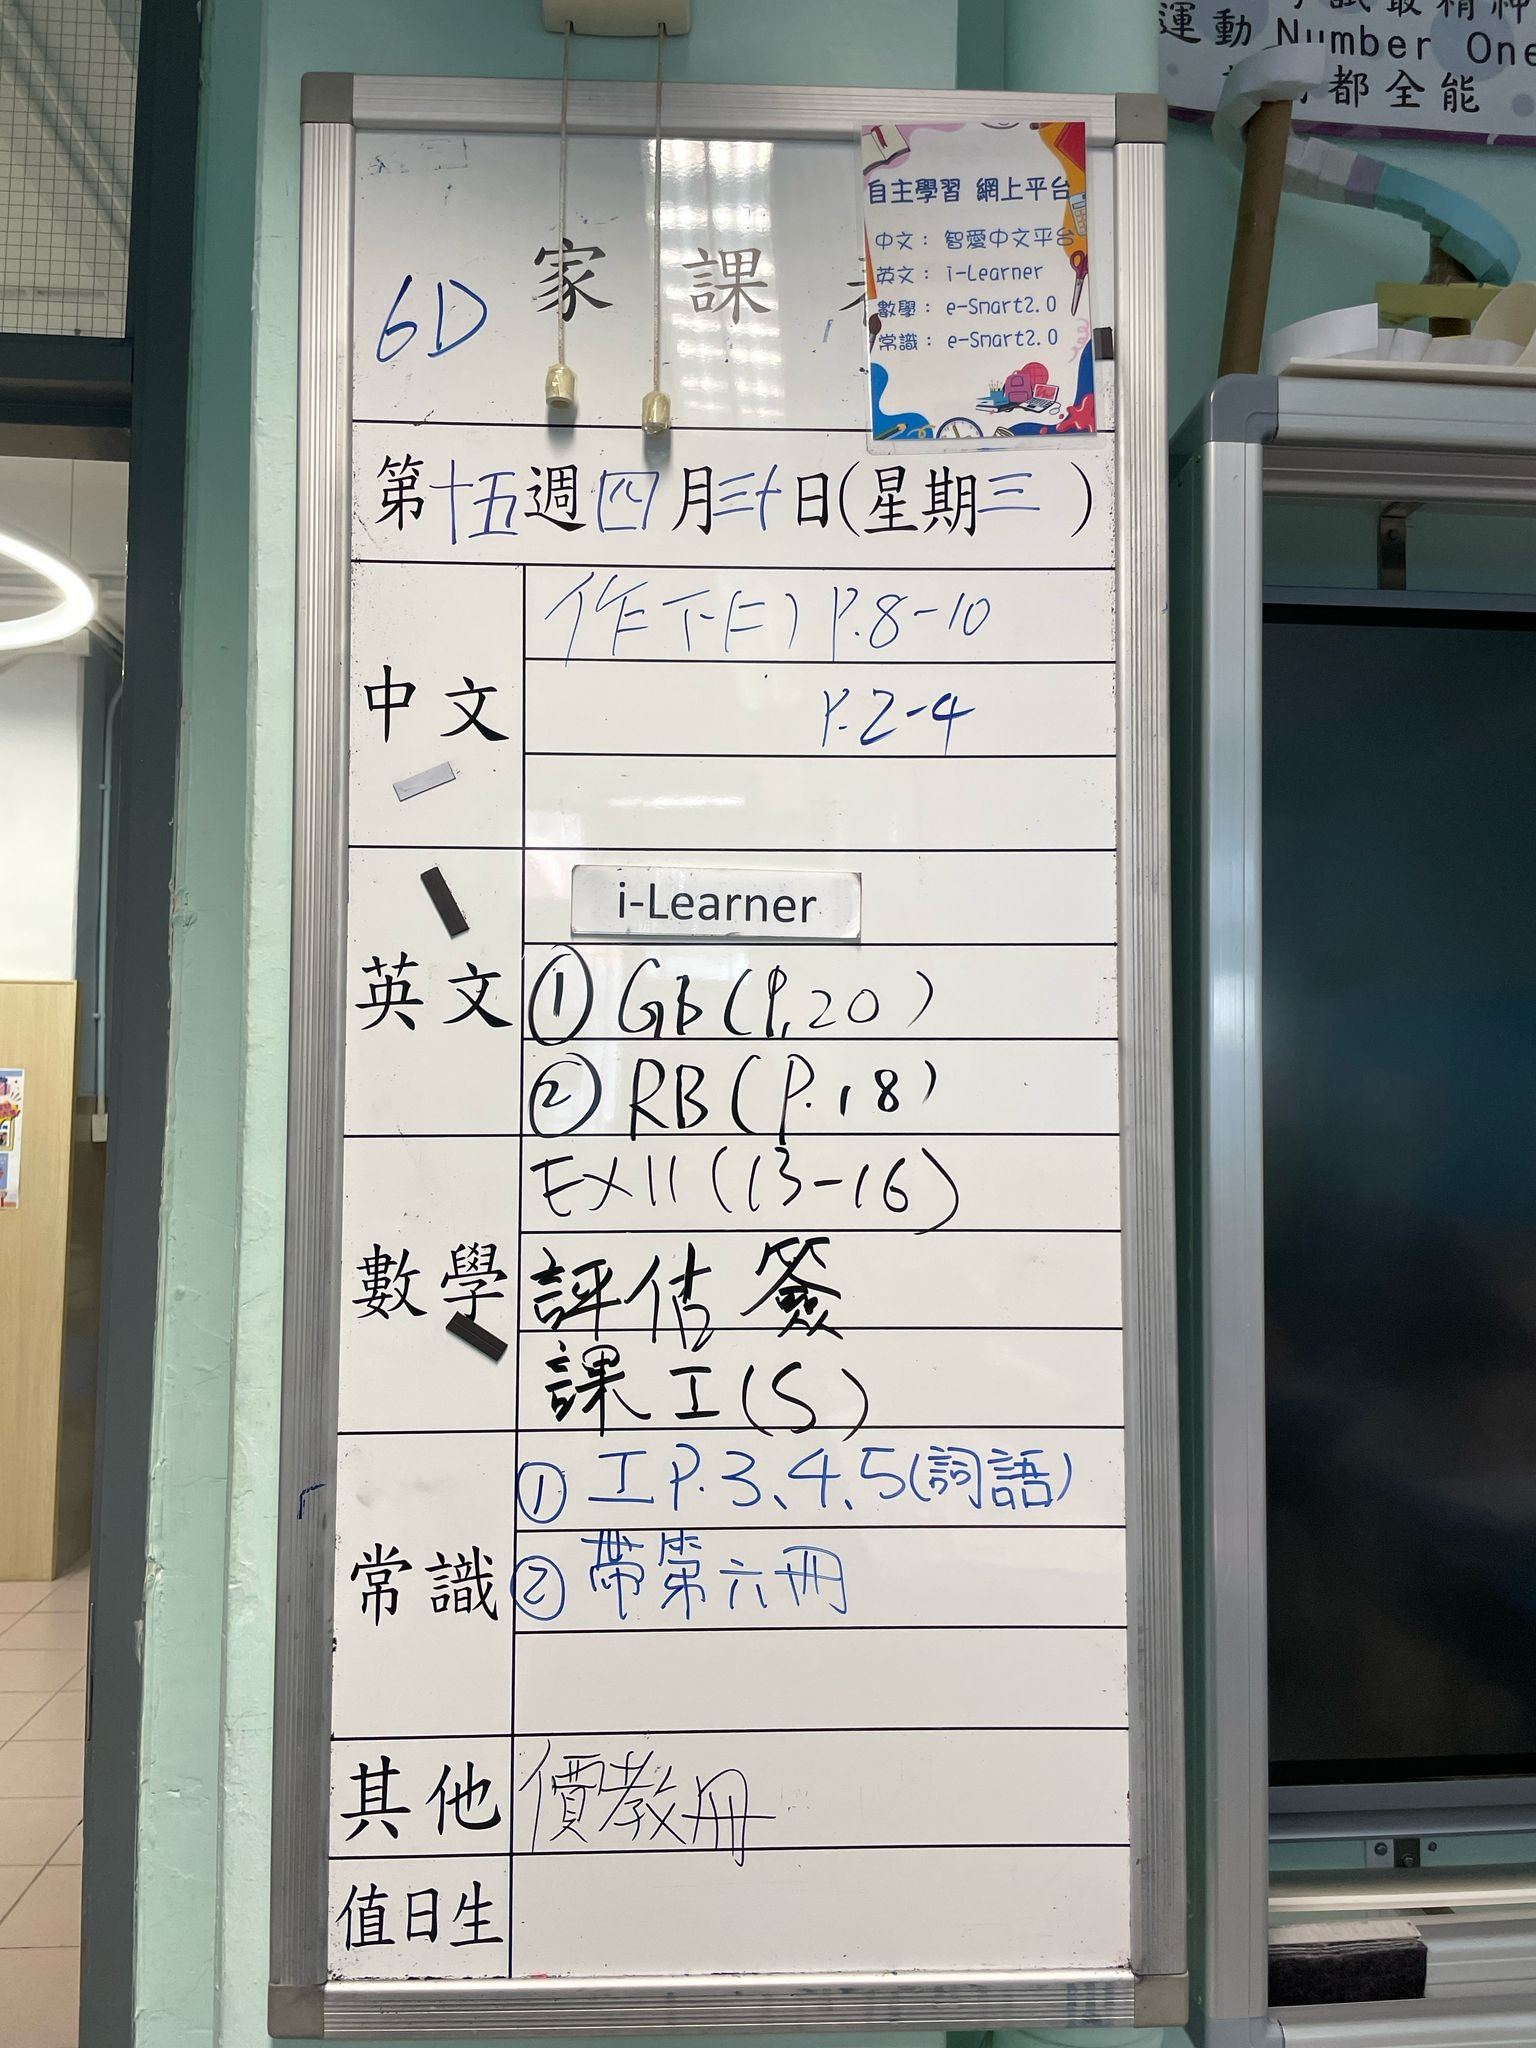 運動 Number One
都全能
6D 家課
自主學習 網上平台
中文： 智愛中文平台
英文： i-Learner
數學： e-Smart2.0
常識： e-Smart2.0
第十五週四月三十日(星期三)
中文
作下(二) P.8-10
P.2-4
英文
i-Learner
① GB(P.20)
② RB(P.18)
數學
EX11(13-16)
評估 簽
課工(S)
常識
① 工P.3、4、5(詞語)
② 帶第六冊
其他 價教冊
值日生